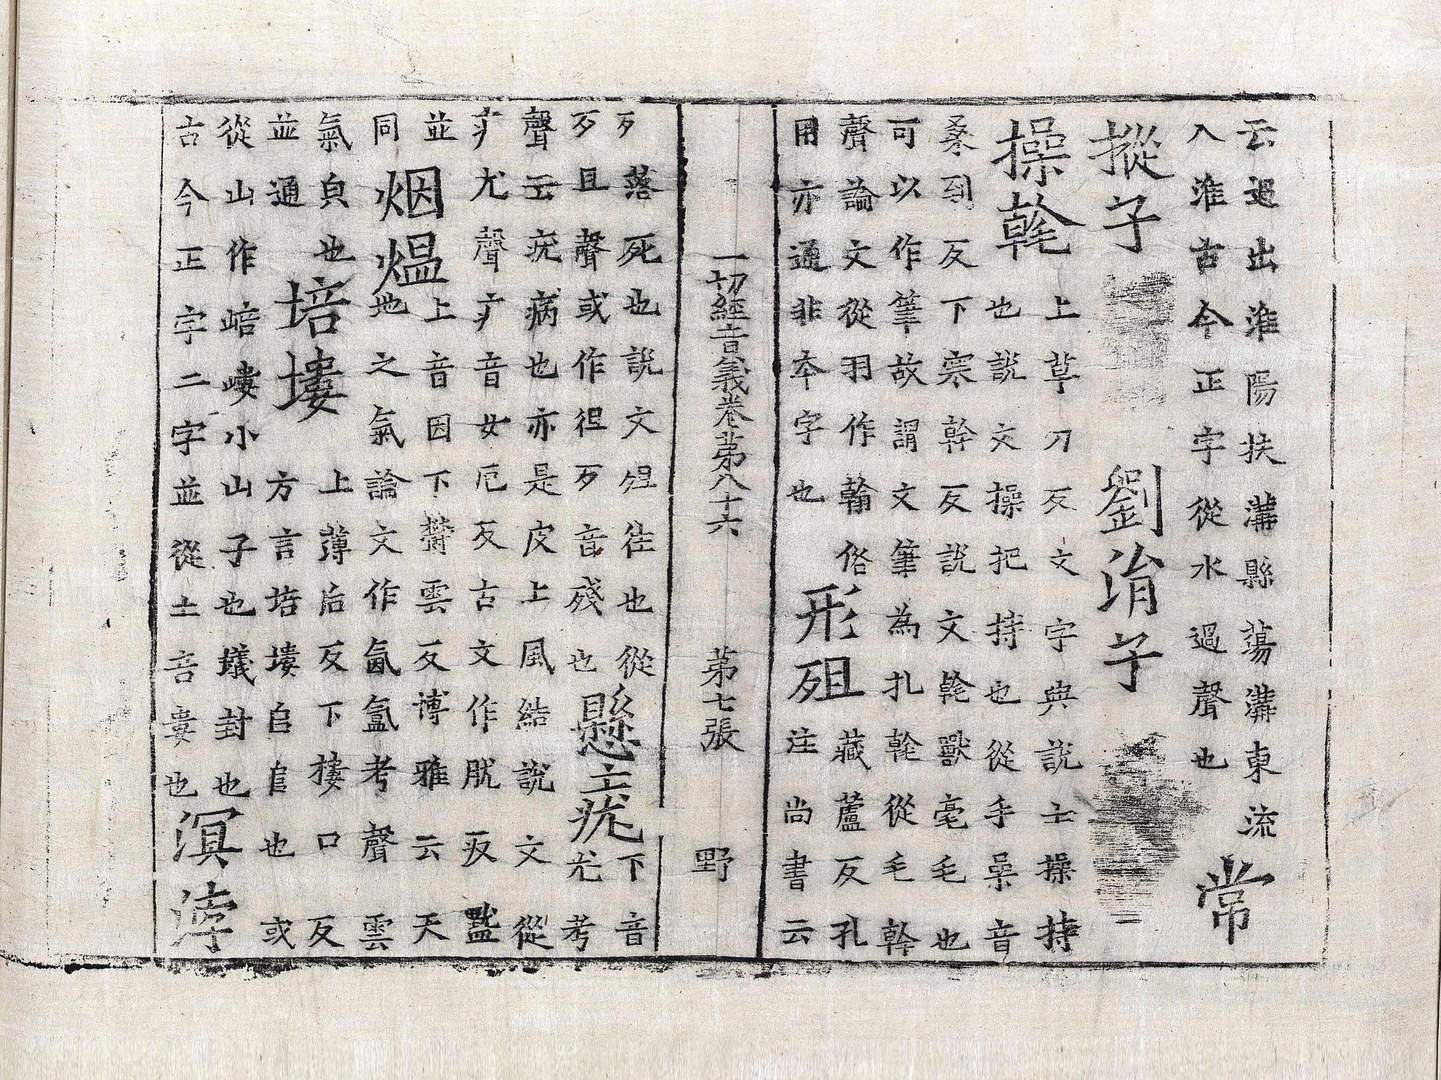 云過出淮陽扶溝縣蕩溝東流
入淮古今正字從水過聲也
常
摐子
劉涓子
一
操㲦
上草刀反文字典說士操持
也說文操把持也從手喿音
桑到反下寒幹反說文㲦獸毫毛也
可以作筆故謂文筆為扎㲦從毛幹
聲論文從羽作翰俗
用亦通非本字也
形殂
藏蘆反孔
注尚書云
一切經音義卷第八十六 第七張 野
歹落死也說文殂往也從
歹且聲或作徂歹音殘也
懸疣
下音
尤考
聲云疣病也亦是皮上風結說文從
疒尤聲疒音女厄反古文作肬
並
同
烟熅
上音因下鬱雲反博雅云天
地之氣論文作氤氳考聲雲
氣皃也
並通
培塿
上薄后反下摟口反
方言培塿自𠂤也或
從山作㟝嶁小山子也蟻封也
古今正字二字並從土咅婁也
溟涬